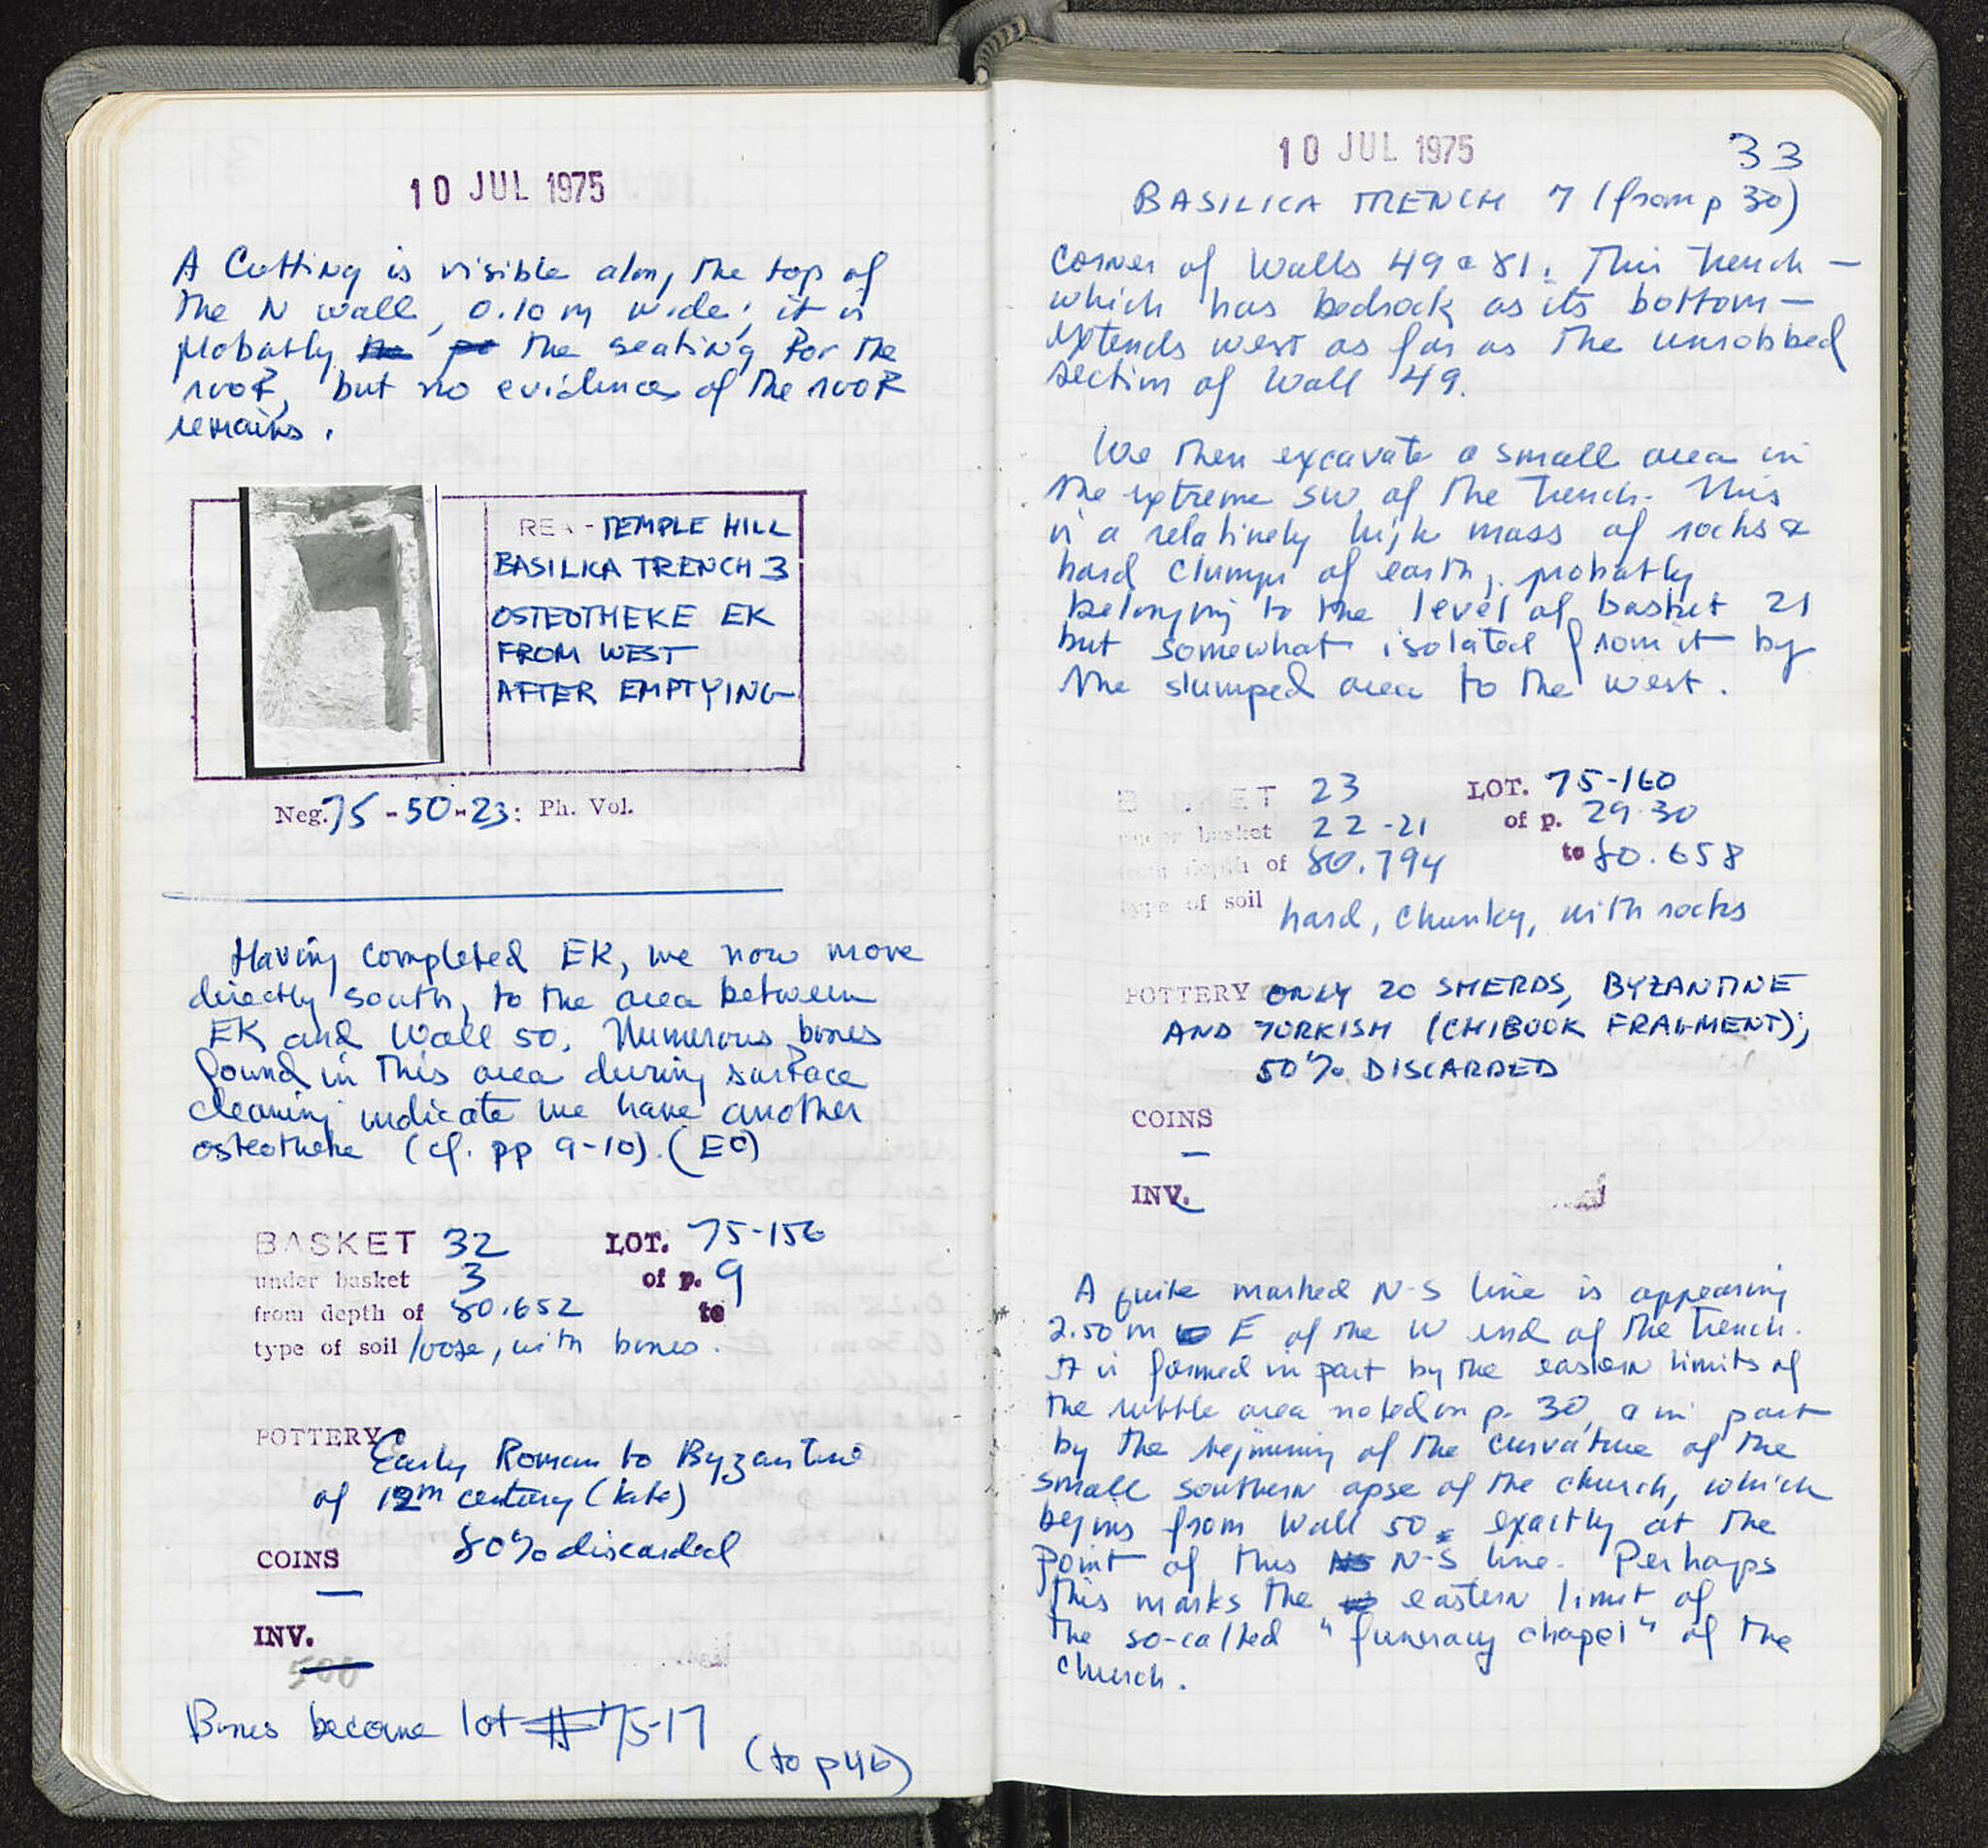 10 JUL 1975
A Cutting is visible along the top of
the N wall, 0.10 m wide; it is
probably the seating for the
roof, but no evidence of the roof
remains.
TEMPLE HILL
BASILICA TRENCH 3
OSTEOTHEKE EK
FROM WEST
AFTER EMPTYING
Neg. 75-50-23: Ph. Vol.
Having completed EK, we now move
directly south, to the area between
EK and Wall 50. Numerous bones
found in this area during surface
cleaning indicate we have another
osteotheke (cf. pp 9-10). (EC)
BASKET 32 LOT. 75-156
under basket 3 of p. 9
from depth of 80.652 to
type of soil loose, with bones.
POTTERY Early Roman to Byzantine
of 12th century (late)
80% discarded
COINS
—
INV.
500
Bones become lot # 75-17
(to p 46)
10 JUL 1975 33
BASILICA TRENCH 7 (from p 30)
corner of Walls 49 & 81. This trench —
which has bedrock as its bottom —
extends west as far as the unrobbed
section of Wall 49.
We then excavate a small area in
the extreme SW of the trench. This
is a relatively high mass of rocks &
hard clumps of earth, probably
belonging to the level of basket 21
but somewhat isolated from it by
the slumped area to the west.
BASKET 23 LOT. 75-160
under basket 22-21 of p. 29-30
from depth of 80.794 to 80.658
type of soil hard, chunky, with rocks
POTTERY ONLY 20 SHERDS, BYZANTINE
AND TURKISH (CHIBOUK FRAGMENT);
50% DISCARDED
COINS
—
INV.
A quite marked N-S line is appearing
2.50 m E of the W end of the trench.
It is formed in part by the eastern limits of
the rubble area noted on p. 30, & in part
by the beginning of the curvature of the
small southern apse of the church, which
begins from Wall 50 exactly at the
point of this N-S line. Perhaps
this marks the eastern limit of
the so-called "funerary chapel" of the
church.